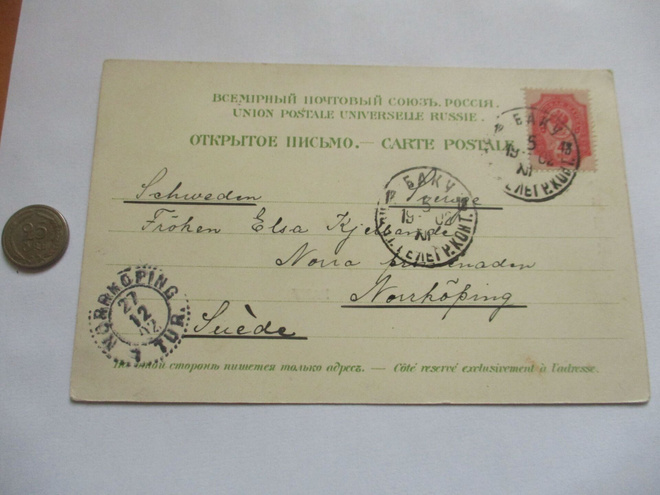 ВСЕМІРНЫЙ ПОЧТОВЫЙ СОЮЗЪ. РОССІЯ.
UNION POSTALE UNIVERSELLE RUSSIE.
ОТКРЫТОЕ ПИСЬМО.— CARTE POSTALE
БАКУ
5
19 02
XII
ТЕЛЕГР. КОНТ.
БАКУ
5
19 02
XII
ТЕЛЕГР. КОНТ.
Schweden Sverige
Fröken Elsa
Norra
Norrköping
Suède
NORRKÖPING
27
12
02
1 TUR.
25
сторонѣ пишется только адресъ. — Côté reservé exclusivement à l'adresse.